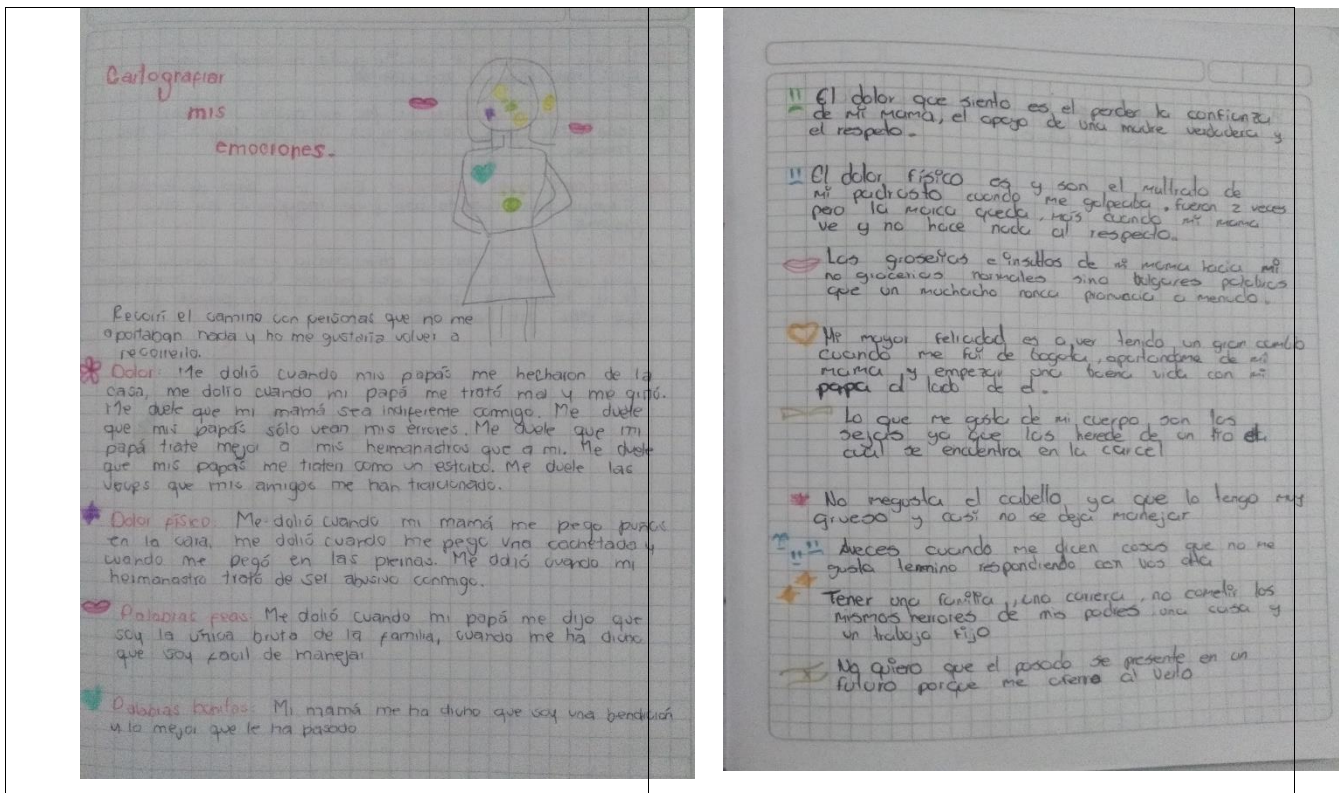 Cartografiar
mis
emociones.
Recorri el camino con personas que no me
aportaban nada y no me gustaria volver a
recorrerlo.
Dolor: Me dolió cuando mis papás me hecharon de la
casa, me dolio cuando mi papá me trató mal y me gritó.
Me duele que mi mamá sea indiferente conmigo. Me duele
que mis papás sólo vean mis errores. Me duele que mi
papá trate mejor a mis hermanastros que a mi. Me duele
que mis papás me traten como un estorbo. Me duele las
veces que mis amigos me han traicionado.
Dolor físico: Me dolió cuando mi mamá me pego puños
en la cara, me dolió cuando me pego una cachetada y
cuando me pegó en las piernas. Me dolió cuando mi
hermanastro trató de ser abusivo conmigo.
Palabras feas: Me dolió cuando mi papá me dijo que
soy la única bruta de la familia, cuando me ha dicho
que soy facil de manejar
Palabras bonitas: Mi mamá me ha dicho que soy una bendición
y lo mejor que le ha pasado
El dolor que siento es el perder la confianza
de mi mama, el apoyo de una madre verdadera y
el respeto.
El dolor físico es y son el maltrato de
mi padrasto cuando me golpeaba. fueron 2 veces
pero la marca queda, mas cuando mi mama
ve y no hace nada al respecto.
Las groserias e insultos de mi mama hacia mi
no grocerias normales sino bulgares palabras
que un muchacho nunca pronuncia a menudo.
Mi mayor felicidad es a ver tenido un gran cambio
cuando me fui de bogota, apartandome de mi
mama y empezar una buena vida con mi
papa al lado de el.
Lo que me gusta de mi cuerpo son las
sejas ya que las herede de un tio el
cual se encuentra en la carcel
No megusta el cabello, ya que lo tengo muy
grueso y casi no se deja manejar
Aveces cuando me dicen cosas que no me
gusta termino respondiendo con vos alta
Tener una familia, una carrera, no cometer los
mismos herrores de mis padres una casa y
un trabajo fijo
No quiero que el pasado se presente en un
futuro porque me al verlo